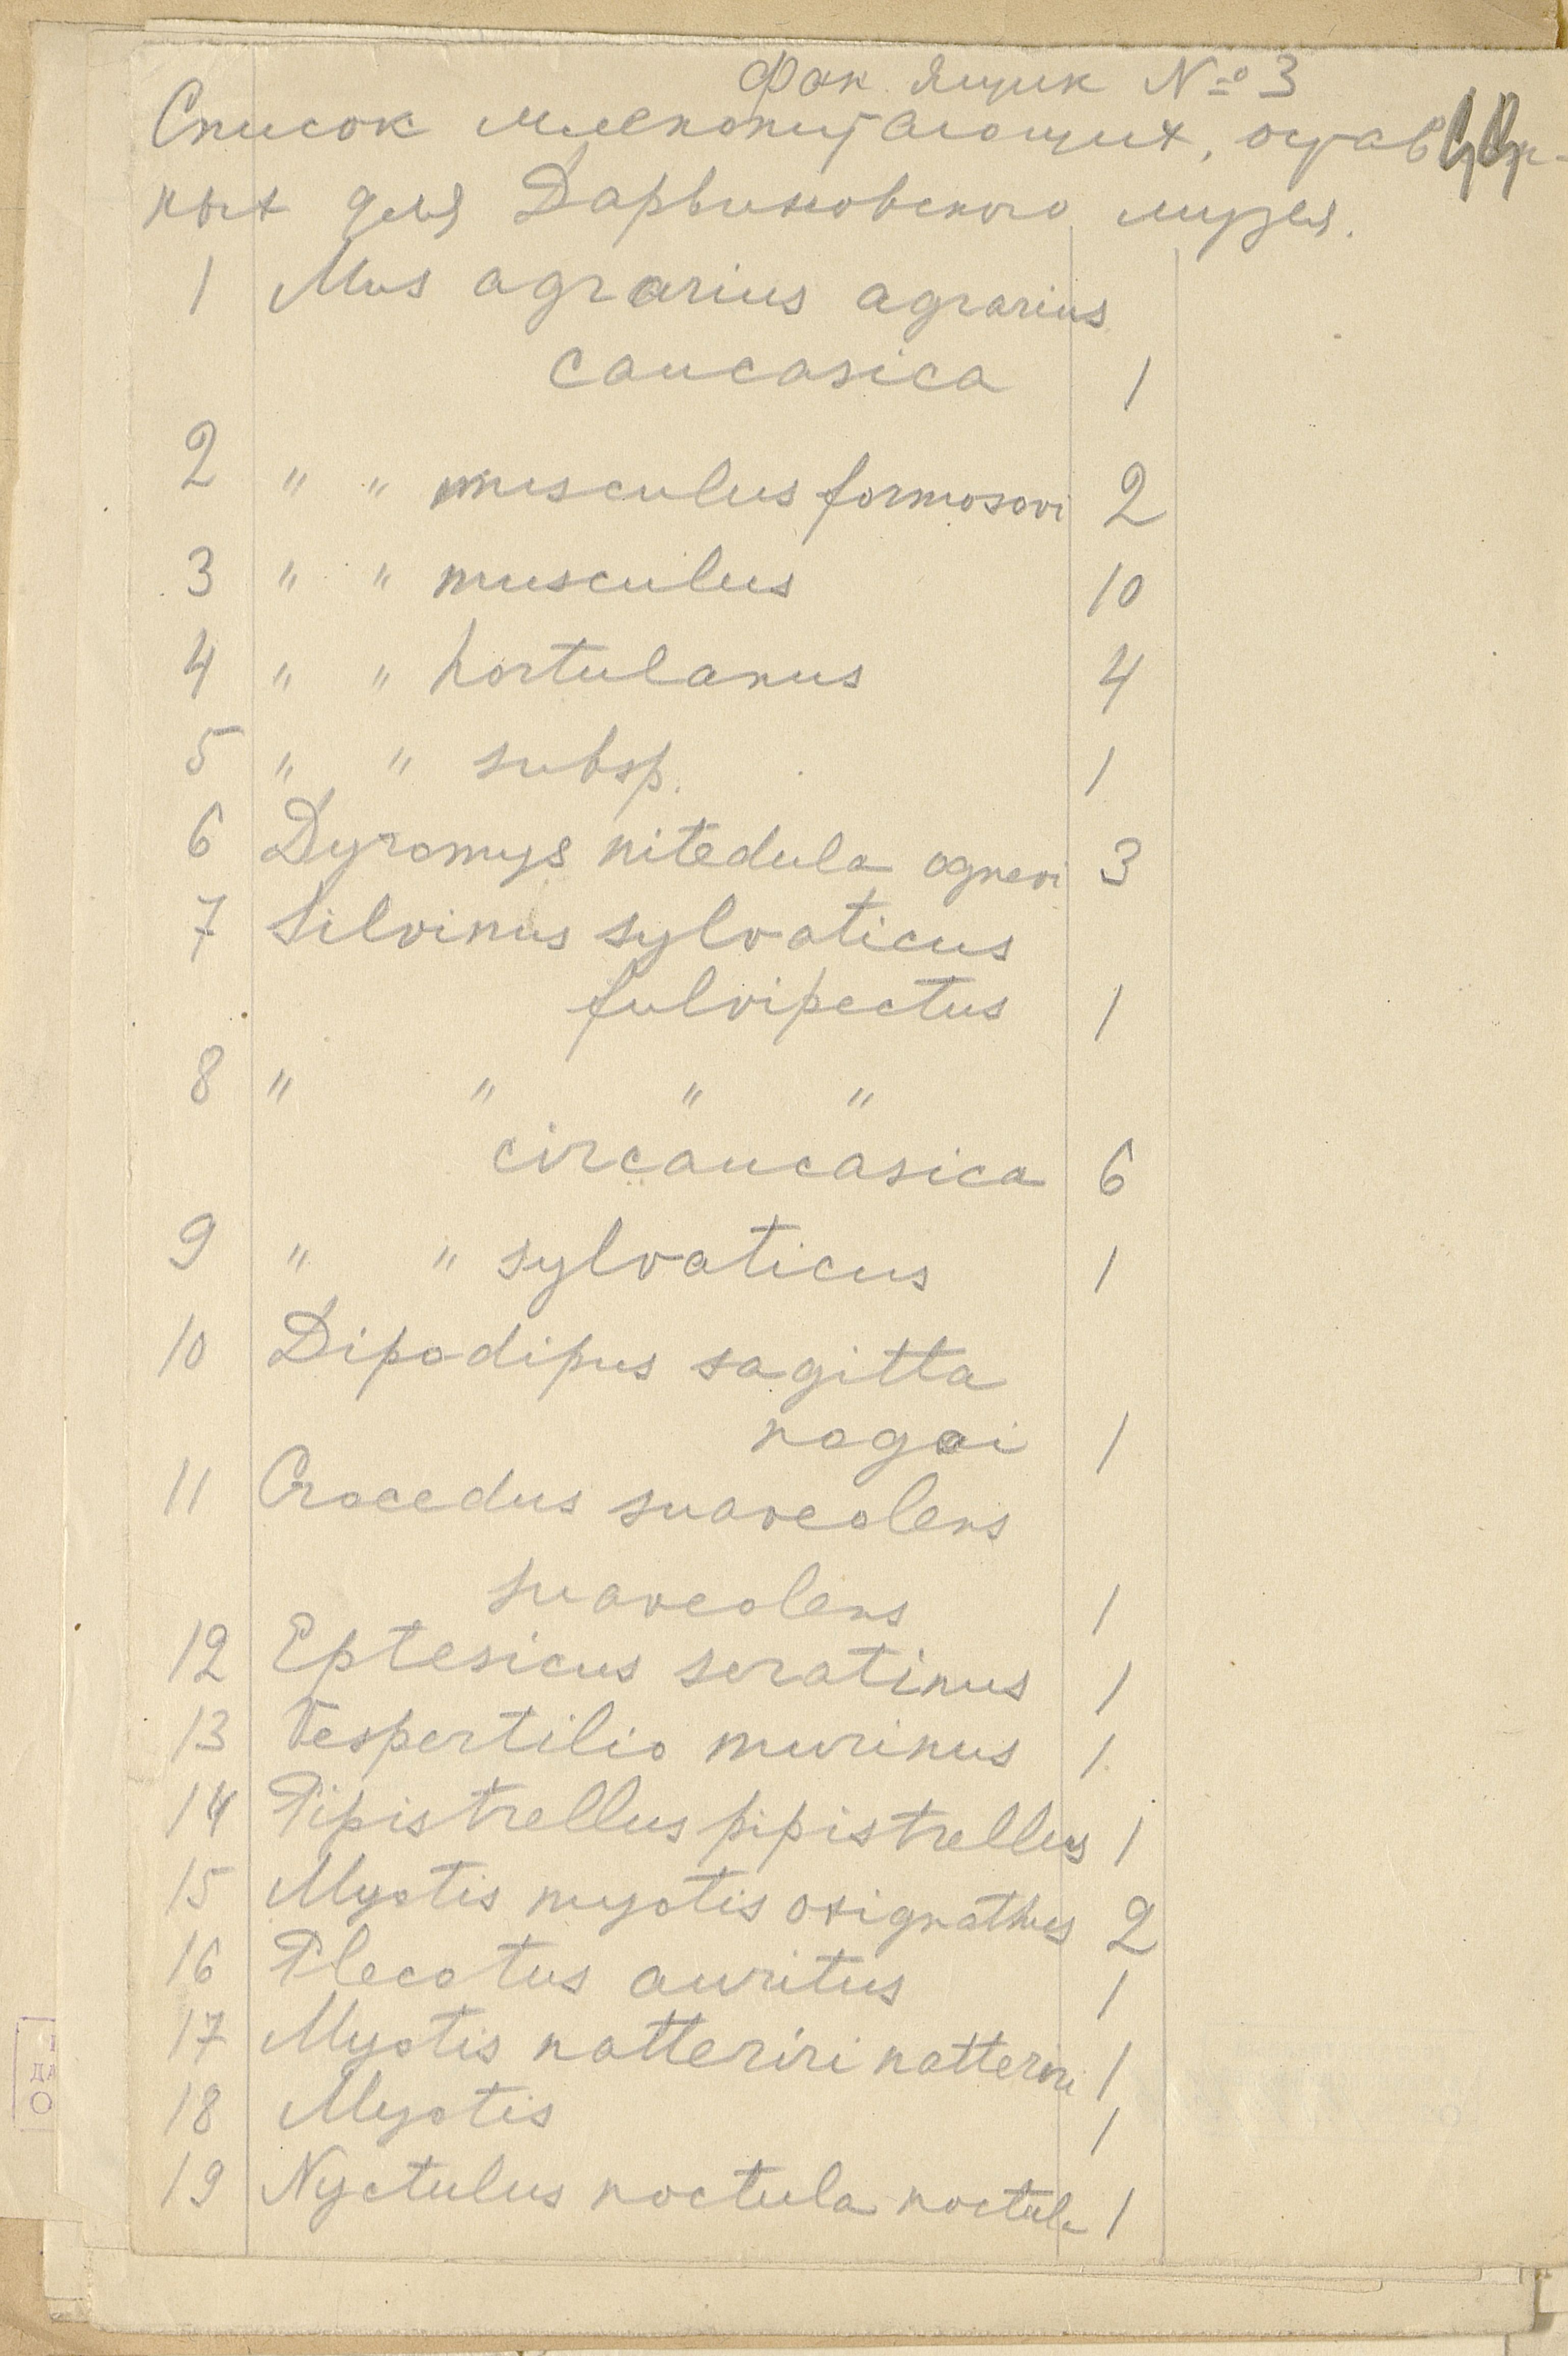 Фан. Ящик № 3
Список млекопитающих, оставлен-
ных для Дарвиновского музея.
1 Mus agrarius agrarius
caucasica 1
2 " " musculus formosovi 2
3 " " musculus 10
4 " " hortulanus 4
5 " " subsp. 1
6 Dyromys nitedula ognevi 3
7 Silvinus sylvaticus
fulvipectus 1
8 " " " "
circaucasica 6
9 " " sylvaticus 1
10 Dipodipus sagitta
nogai 1
11 Crocedus suaveolens
suaveolens 1
12 Eptesicus seratinus 1
13 Vespertilio murinus 1
14 Pipistrellus pipistrellus 1
15 Myotis myotis oxignathus 2
16 Plecotus auritus 1
17 Myotis natteriri natterni 1
18 Myotis 1
19 Nyctulus noctula noctula 1